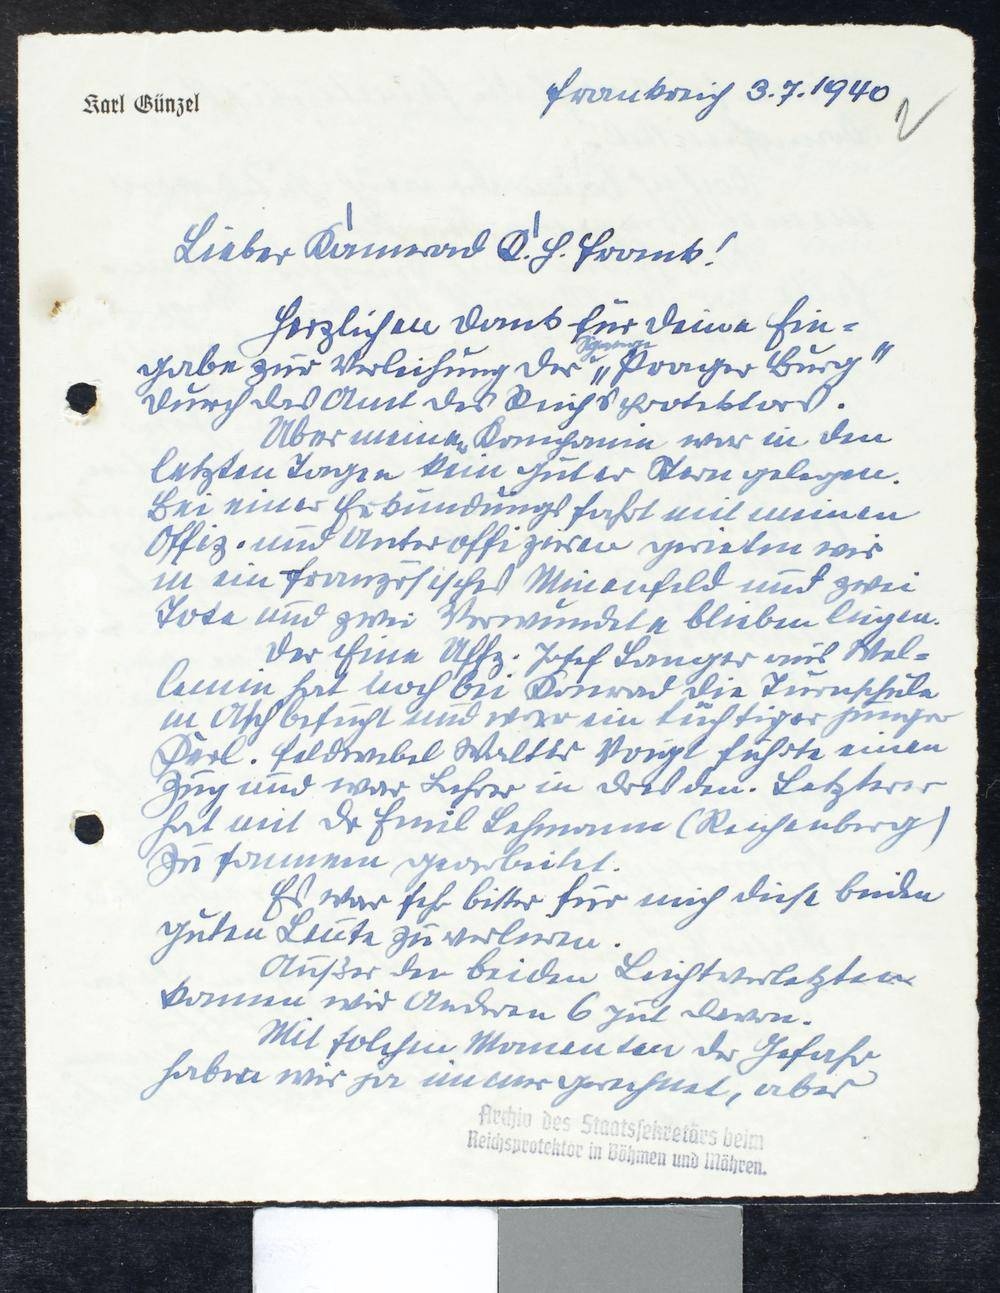 Karl Günzel
Frankreich 3.7.1940
Lieber Kamerad K. H. Frank!
Herzlichen Dank für deine Ein=
gabe zur Verleihung der Spange
„Prager Burg"
durch das Amt des Reichsprotektors.
Über meiner Kompanie war in den
letzten Tagen kein guter Stern gelegen.
Bei einer Erkundungsfahrt mit meinen
Offiz. und Unteroffizieren gerieten wir
in ein französisches Minenfeld und zwei
Tote und zwei Verwundete blieben liegen.
Der Eine Uffz. Josef Langer aus Wel=
lemin hat noch bei Konrad die Turnschule
in Asch besucht und war ein tüchtiger junger
Kerl. Feldwebel Walter Voigt führte einen
Zug und war Lehrer in Dresden. Letzterer
hat mit Dr Emil Lehmann (Reichenberg)
zusammen gearbeitet.
Es war sehr bitter für mich diese beiden
guten Leute zu verlieren.
Außer den beiden Leichtverletzten
kamen wir Anderen 6 gut davon.
Mit solchen Momenten der Gefahr
haben wir ja immer gerechnet, aber
Archiv des Staatssekretärs beim
Reichsprotektor in Böhmen und Mähren.